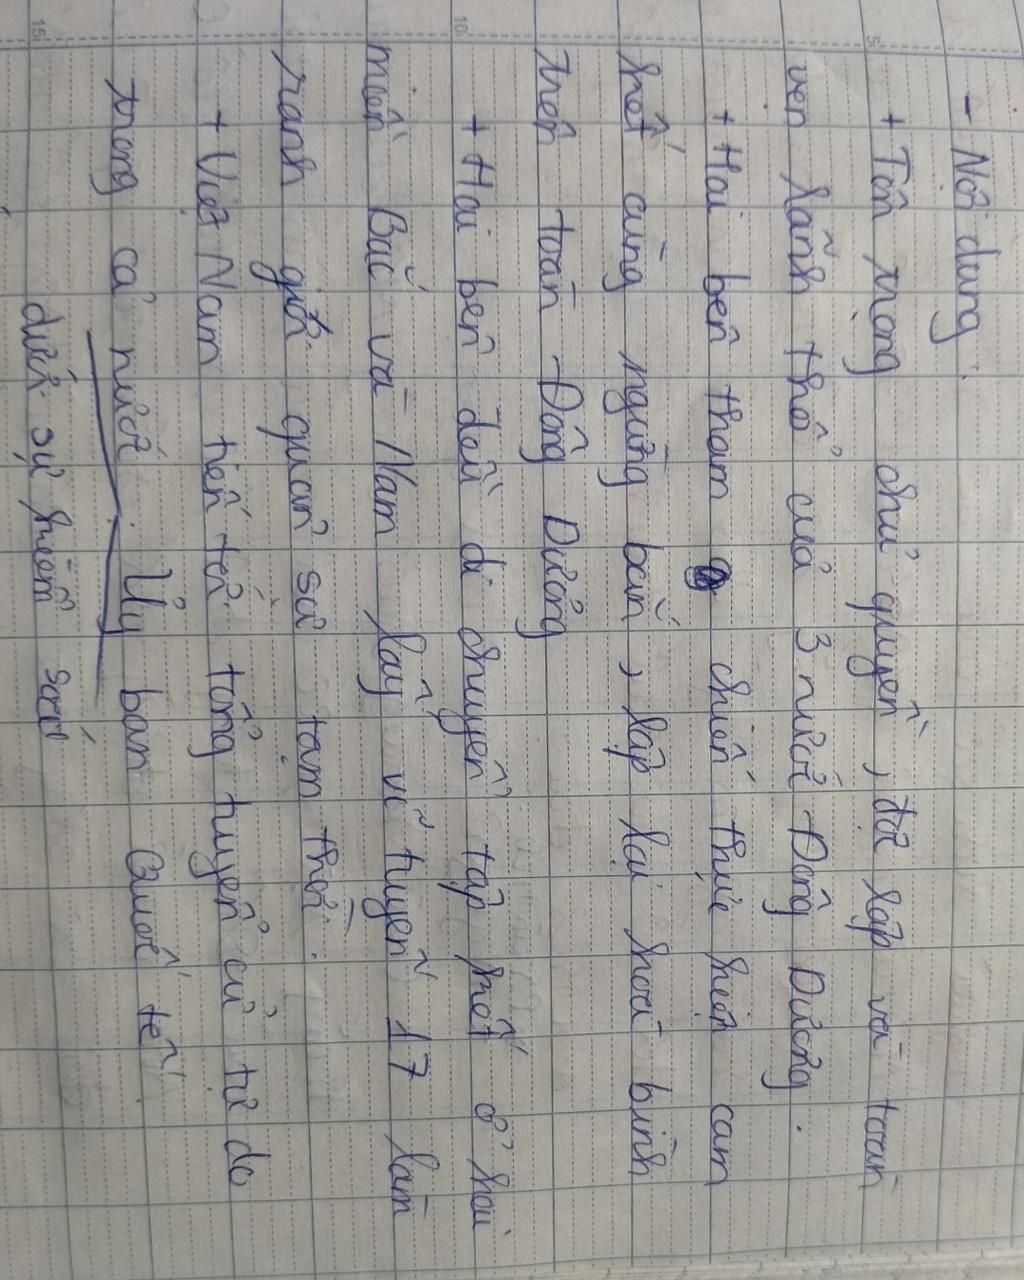 - Nội dung:
+ Tôn trọng chủ quyền, độc lập và toàn
vẹn lãnh thổ của 3 nước Đông Dương.
+ Hai bên tham chiến thực hiện cam
kết cùng ngừng bắn, lập lại hoà bình
trên toàn Đông Dương
+ Hai bên đều di chuyển tập kết ở hai
miền Bắc và Nam lấy vĩ tuyến 17 làm
ranh giới quân sự tạm thời.
+ Việt Nam tiến tới tổng tuyển cử tự do
trong cả nước. Uỷ ban Quốc tế
dưới sự kiểm soát
5
10
15